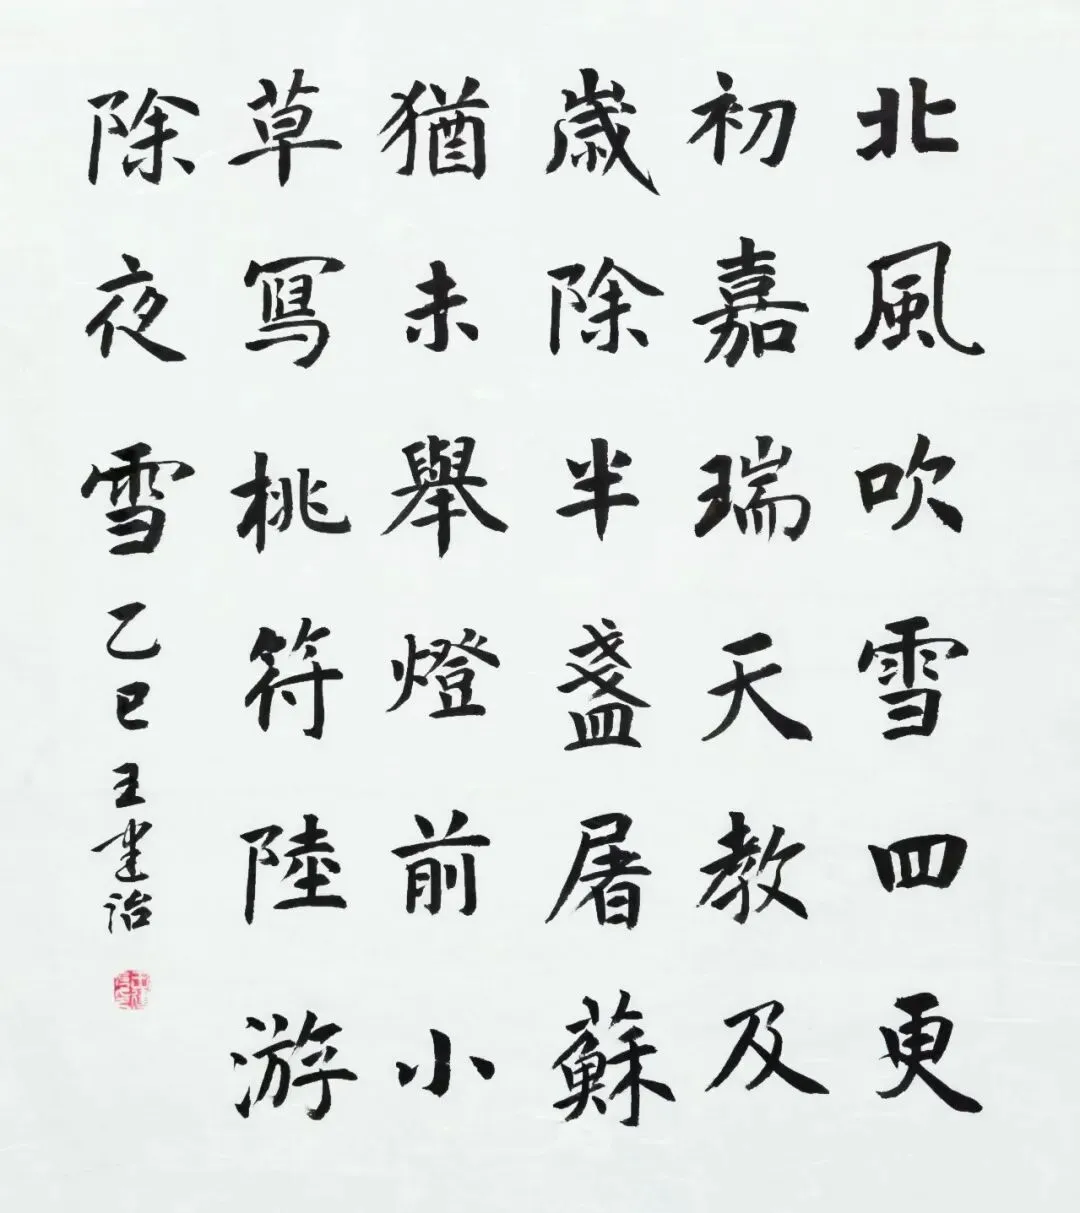 北風吹雪四更
初嘉瑞天教及
歲除半盞屠蘇
猶未舉燈前小
草寫桃符陸游
除夜雪乙巳王建詒